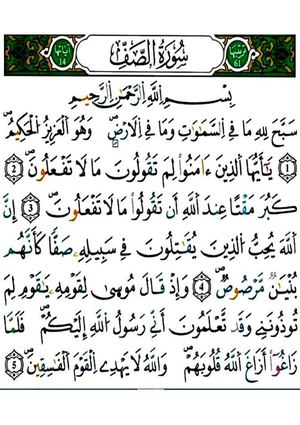 ترتيبها 61 سُورَةُ الصَّفِّ آياتها 14
بِسْمِ اللَّهِ الرَّحْمَٰنِ الرَّحِيمِ
سَبَّحَ لِلَّهِ مَا فِي السَّمَٰوَٰتِ وَمَا فِي الْأَرْضِ ۖ وَهُوَ الْعَزِيزُ الْحَكِيمُ
1 يَٰٓأَيُّهَا الَّذِينَ ءَامَنُوا لِمَ تَقُولُونَ مَا لَا تَفْعَلُونَ 2
كَبُرَ مَقْتًا عِندَ اللَّهِ أَن تَقُولُوا مَا لَا تَفْعَلُونَ 3 إِنَّ
اللَّهَ يُحِبُّ الَّذِينَ يُقَٰتِلُونَ فِي سَبِيلِهِ صَفًّا كَأَنَّهُم
بُنْيَٰنٌ مَّرْصُوصٌ 4 وَإِذْ قَالَ مُوسَىٰ لِقَوْمِهِ يَٰقَوْمِ لِمَ
تُؤْذُونَنِي وَقَد تَّعْلَمُونَ أَنِّي رَسُولُ اللَّهِ إِلَيْكُمْ ۖ فَلَمَّا
زَاغُوا أَزَاغَ اللَّهُ قُلُوبَهُمْ ۚ وَاللَّهُ لَا يَهْدِي الْقَوْمَ الْفَٰسِقِينَ 5